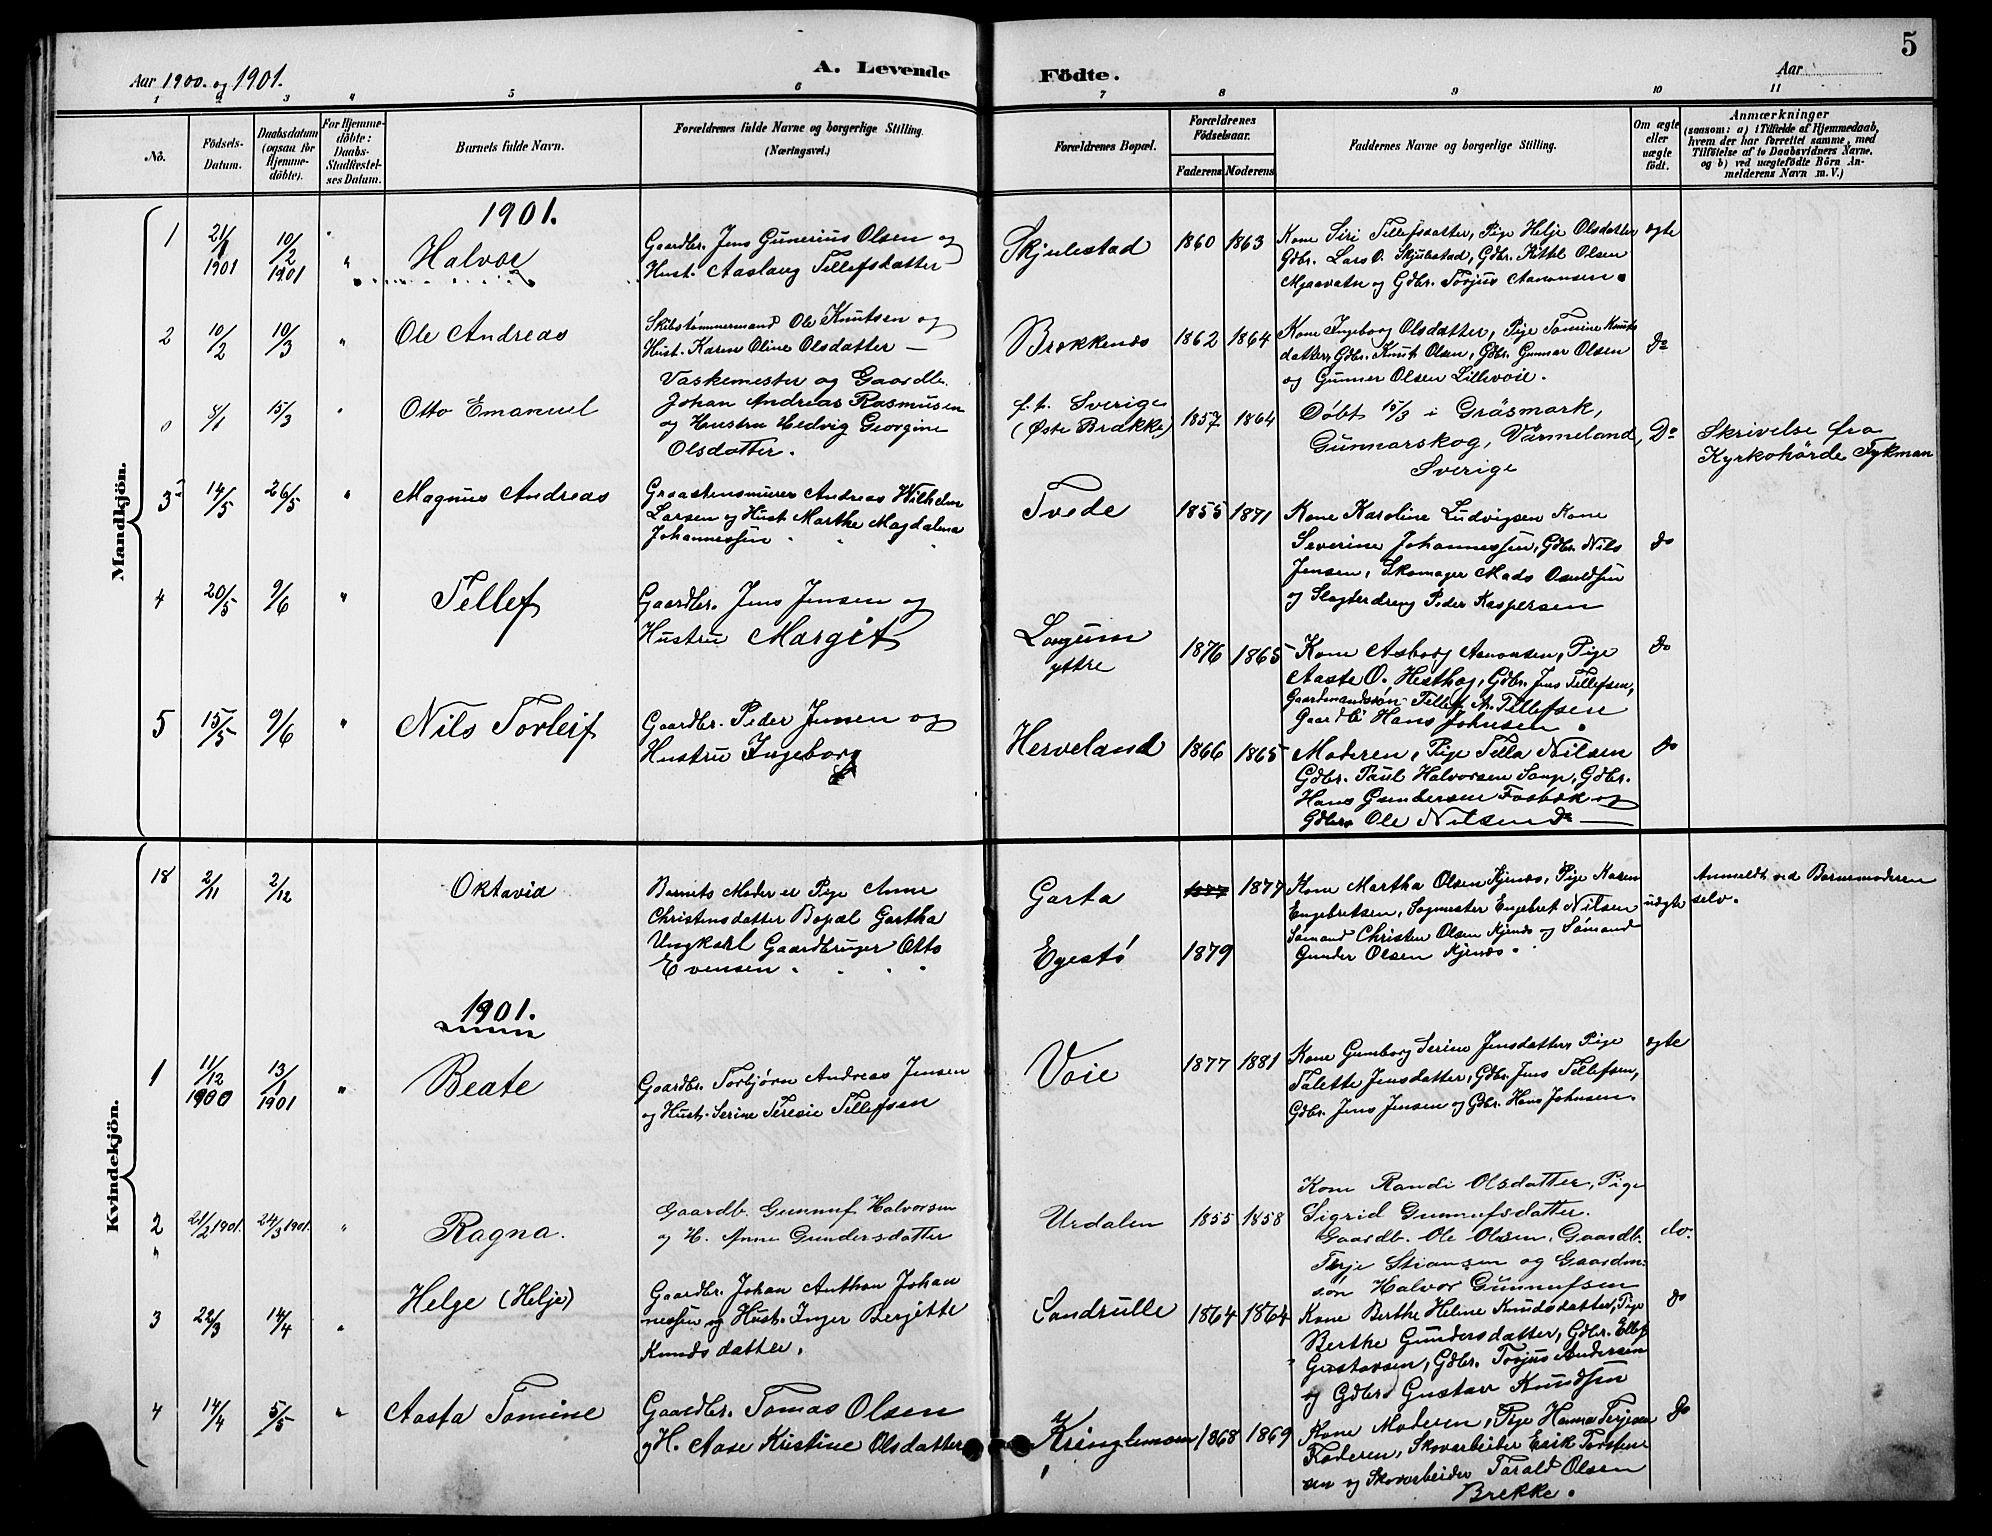 Aar 1900. og 1901.
A. Levende Födte.
Aar
5
1 2 3 4 5 6 7 8 9 10 11
No.
Födsels-Datum.
Daabsdatum (ogsaa for Hjemme-döbte).
For Hjemme-döbte: Daabs-Stadfæstel-ses Datum.
Barnets fulde Navn.
Forældrenes fulde Navne og borgerlige Stilling.
(Næringsvei.)
Forældrenes Bopæl.
Forældrenes Födselsaar.
Faderens Moderens
Faddernes Navne og borgerlige Stilling.
Om ægte eller uægte födt.
Anmærkninger
(saasom: a) i Tilfælde af Hjemmedaab,
hvem der har forrettet samme, med
Tilföielse af to Daabsvidners Navne,
og b) ved uægtefödte Börn An-
melderens Navn m. V.)
Mandkjön.
1901.
1
21/1 1901
10/2 1901
"
Halvor
Gaardbr. Jens Gunerius Olsen og
Hust. Aaslaug Tellefsdatter
Skjulestad
1860 1863
Kone Siri Tellefsdatter, Pige Helje Olsdatter
Gdbr. Lars O. Skjulestad, Gdbr. Kittel Olsen
Mjaavatn og Gdbr. Torjus Aanonsen.
ægte
2
10/2
10/3
"
Ole Andreas
Skibstømmermand Ole Knutsen og
Hust. Karen Oline Olsdatter —
Brækkenæs
1862 1864
Kone Ingeborg Olsdatter, Pige Tomine Knuts
datter, Gdbr. Knut Olsen, Gdbr. Gunnar Olsen
og Gunner Olsen Lillevoie.
Do
0
8/1
15/3
"
Otto Emanuel
Vaskemester og Gaardb.
Johan Andreas Rasmusen
og Hustru Hedvig Georgine
Olsdatter.
f. t. Sverige
(Øste Brække)
1857 1864
Døbt 15/3 i Gräsmark,
Gunnarskog, Värmeland,
Sverige
Do
Skrivelse fra
Kyrkohörde Fykman
3
14/5
26/5
"
Magnus Andreas
Graastensmurer Andreas Wilhelm
Larsen og Hust. Marthe Magdalena
Johannessen " " "
Tvede
1855 1871
Kone Karoline Ludvigsen Kone
Severine Johannessen, Gdbr. Nils
Jensen, Skomager Mads Osuldsen
og Slagterdreng Peder Kaspersen
do
4
20/5
9/6
"
Tellef
Gaardbr. Jens Jensen og
Hustru Margit
Laugum
yttre
1876 1865
Kone Asborg Aanonsen, Pige
Aaste O. Hesthag, Gdbr. Jens Tellefsen,
Gaardmandssøn Tellef A. Tellefsen
Gaardb. Hans Johnsen.
do
5
15/5
9/6
"
Nils Torleif
Gaardbr. Peder Jensen og
Hustru Ingeborg
Herveland
1866 1865
Moderen, Pige Tella Nilsen
Gdbr. Paul Halvorsen Songe, Gdbr.
Hans Gundersen Fosbæk og
Gdbr. Ole Nilsen do —
do
Kvindekjön.
18
2/11
2/12
Oktavia
Barnets Moder er Pige Anne
Christensdatter Bopæl Gartha
Ungkarl Gaardbruger Otto
Evensen " " "
Garta
Egestø
1877 1877
1879
Kone Martha Olsen Kjenæs, Pige Karen
Engebretsen, Sagmester Engebret Nilsen
Sømand Christen Olsen Kjenæs og Sømand
Gunder Olsen Kjenæs.
uægte
Anmeldt ved Barnemoderen
selv.
1901.
1
11/12 1900
13/1 1901
"
Beate
Gaardbr. Torbjørn Andreas Jensen
og Hust. Serine Teresie Tellefsen
Voie
1877 1881
Kone Gunborg Serine Jensdatter, Pige
Talette Jensdatter, Gdbr. Jens Tellefsen,
Gdbr. Jens Jensen og Gdbr. Hans Johnsen.
ægte
2
"
21/2 1901.
24/3 1901.
"
Ragna.
Gaardb. Gunnuf Halvorsen
og H. Anne Gundersdatter
Urdalen
1855 1858
Kone Randi Olsdatter, Pige
Sigrid Gunnufsdatter.
Gaardb. Ole Olsen, Gaardb.
Terje Stiansen og Gaardm.
søn Halvor Gunnufsen
do.
3
22/3
14/4
"
Helge (Helje)
Gaardbr. Johan Anthon Johan
nessen og Hust. Inger Bergitte
Knudsdatter.
Sandrulle
1864 1864
Kone Berthe Helene Knudsdatter, Pige
Berthe Gundersdatter, Gdbr. Ellef
Gustavsen, Gdbr. Torjus Andersen
og Gdbr. Gustav Knudsen
do
4
14/4
5/5
"
Aasta Tomine
Gaardbr. Tomas Olsen
og H. Aase Kristine Olsdatter
Kringlemoen
1868 1869
Kone Moderen, Pige Hanna Terjesen
Faderen, Skovarbeider Erik Torsten
sen og Skovarbeider Tarald Olsen
Brekke.
do